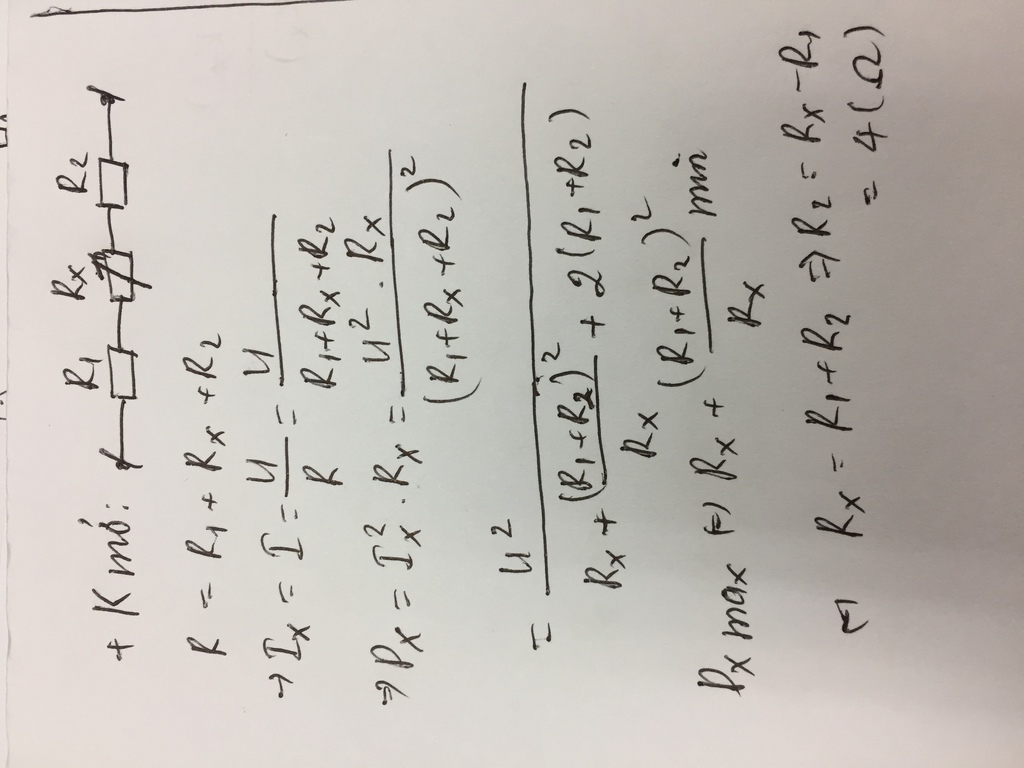 + K mở: R1 Rx R2
R = R1 + Rx + R2
→ Ix = I = U/R = U/(R1+Rx+R2)
⇒ Px = Ix² . Rx = U² . Rx/(R1+Rx+R2)²
= U²/(Rx + (R1+R2)²/Rx + 2(R1+R2))
Px max ⇔ Rx + (R1+R2)²/Rx min
⇔ Rx = R1+R2 ⇒ R2 = Rx - R1
= 4(Ω)